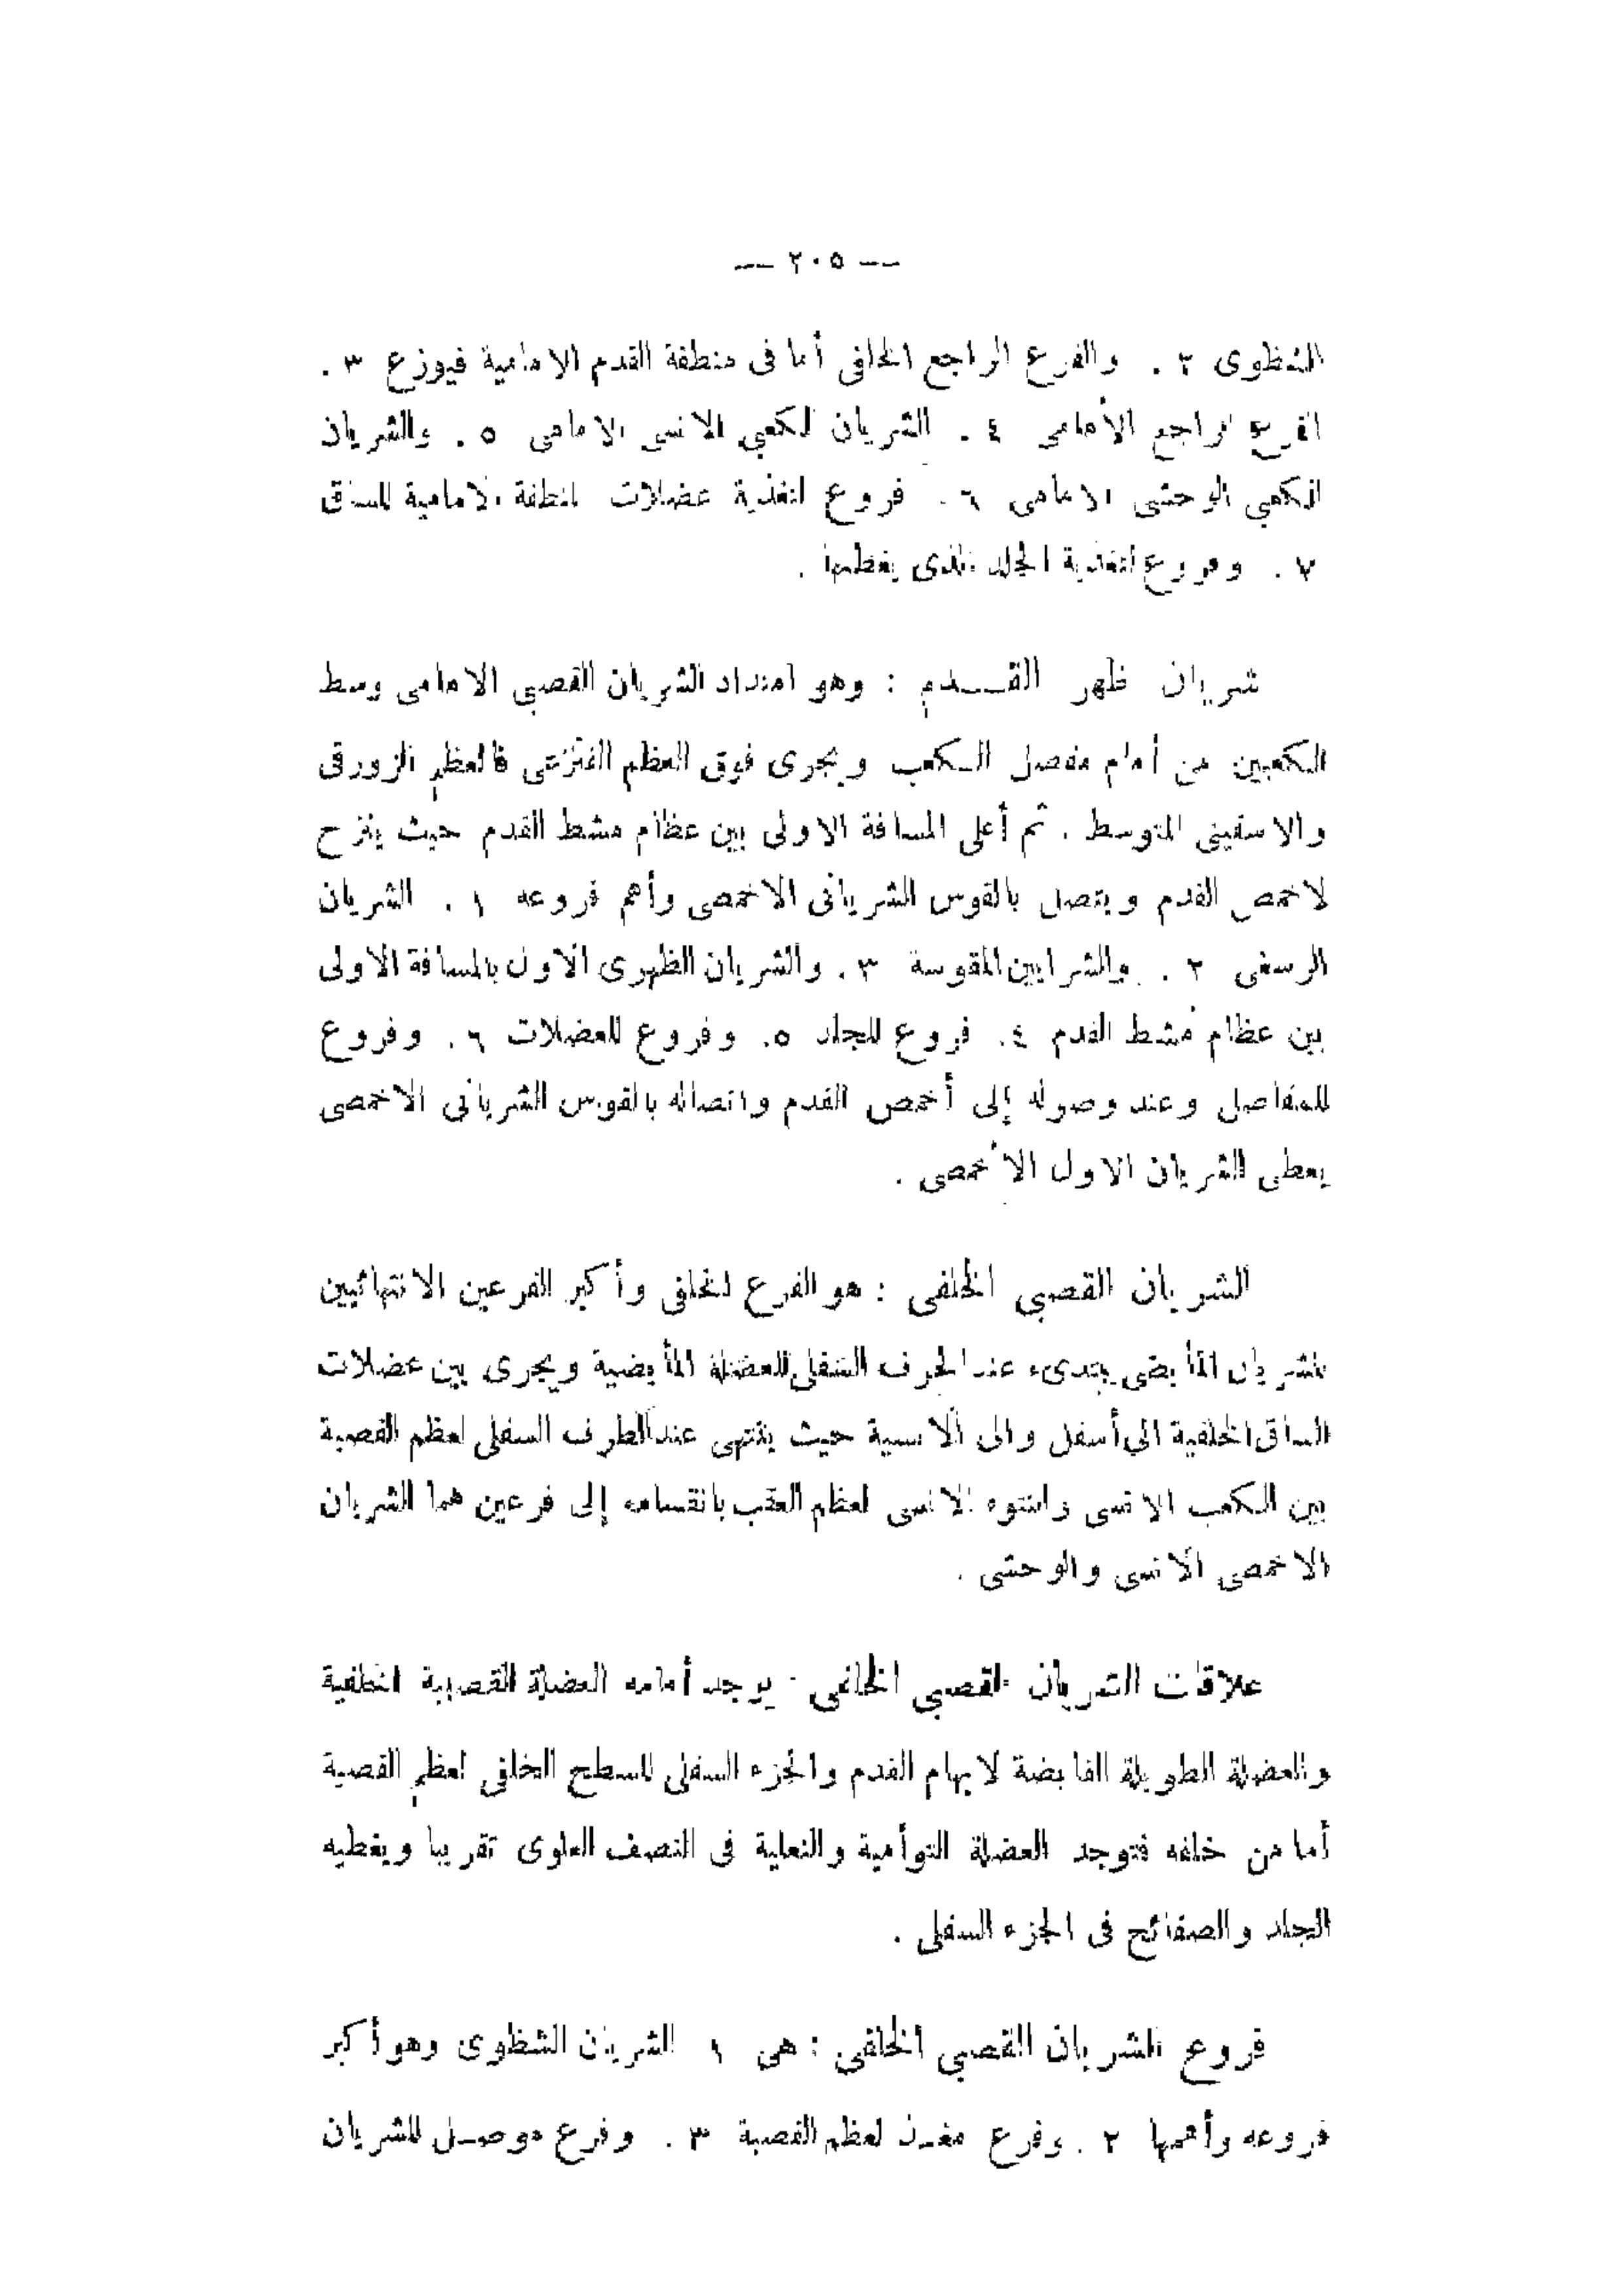 — ٢٠٥ —
الشظوى ٢ . والفرع الراجع الخلفى أما فى منطقة القدم الامامية فيوزع ٣ .
الفرع الراجع الأمامى ٤ . الشريان الكعبي الانسى الامامى ٥ . والشريان
الكعبي الوحشى الامامى ٦ . فروع لتغذية عضلات المنطقة الامامية للساق
٧ . وفروع لتغذية الجلد الذى يغطيها .
شريان ظهر القـــدم : وهو امتداد الشريان القصبي الامامى وسط
الكعبين من أمام مفصل الـكعب ويجرى فوق العظم القنزعى فالعظم الزورقى
والاسفينى المتوسط . ثم أعلى المسافة الاولى بين عظام مشط القدم حيث ينزح
لاخمص القدم ويتصل بالقوس الشريانى الاخمصى وأهم فروعه ١ . الشريان
الرسغى ٢ . والشرايين المقوسة ٣ . والشريان الظهرى الاول بالمسافة الاولى
بين عظام مشط القدم ٤ . فروع للجلد ٥ . وفروع للعضلات ٦ . وفروع
للمفاصل وعند وصوله إلى أخمص القدم واتصاله بالقوس الشريانى الاخمصى
يعطى الشريان الاول الأخمصى .
الشريان القصبي الخلفى : هو الفرع الخلفى وأكبر الفرعين الانتهائيين
للشريان المأبضى يبتدىء عند الحرف السفلى للعضلة المأبضية ويجرى بين عضلات
الساق الخلفية الى أسفل والى الانسية حيث ينتهى عند الطرف السفلى لعظم القصبة
بين الـكعب الانسى والنتوء الانسى لعظم العقب بانقسامه إلى فرعين هما الشريان
الاخمصى الانسى والوحشى .
علاقات الشريان القصبي الخلفى - يوجد أمامه العضلة القصبية الخلفية
والعضلة الطويلة القابضة لابهام القدم والجزء السفلى للسطح الخلفى لعظم القصبة
أما من خلفه فتوجد العضلة التوأمية والنعلية فى النصف العلوى تقريبا ويغطيه
الجلد والصفائح فى الجزء السفلى .
فروع الشريان القصبي الخلفى : هى ١ الشريان الشظوى وهو أكبر
فروعه وأهمها ٢ . وفرع مغـذ لعظم القصبة ٣ . وفرع موصـل للشريان